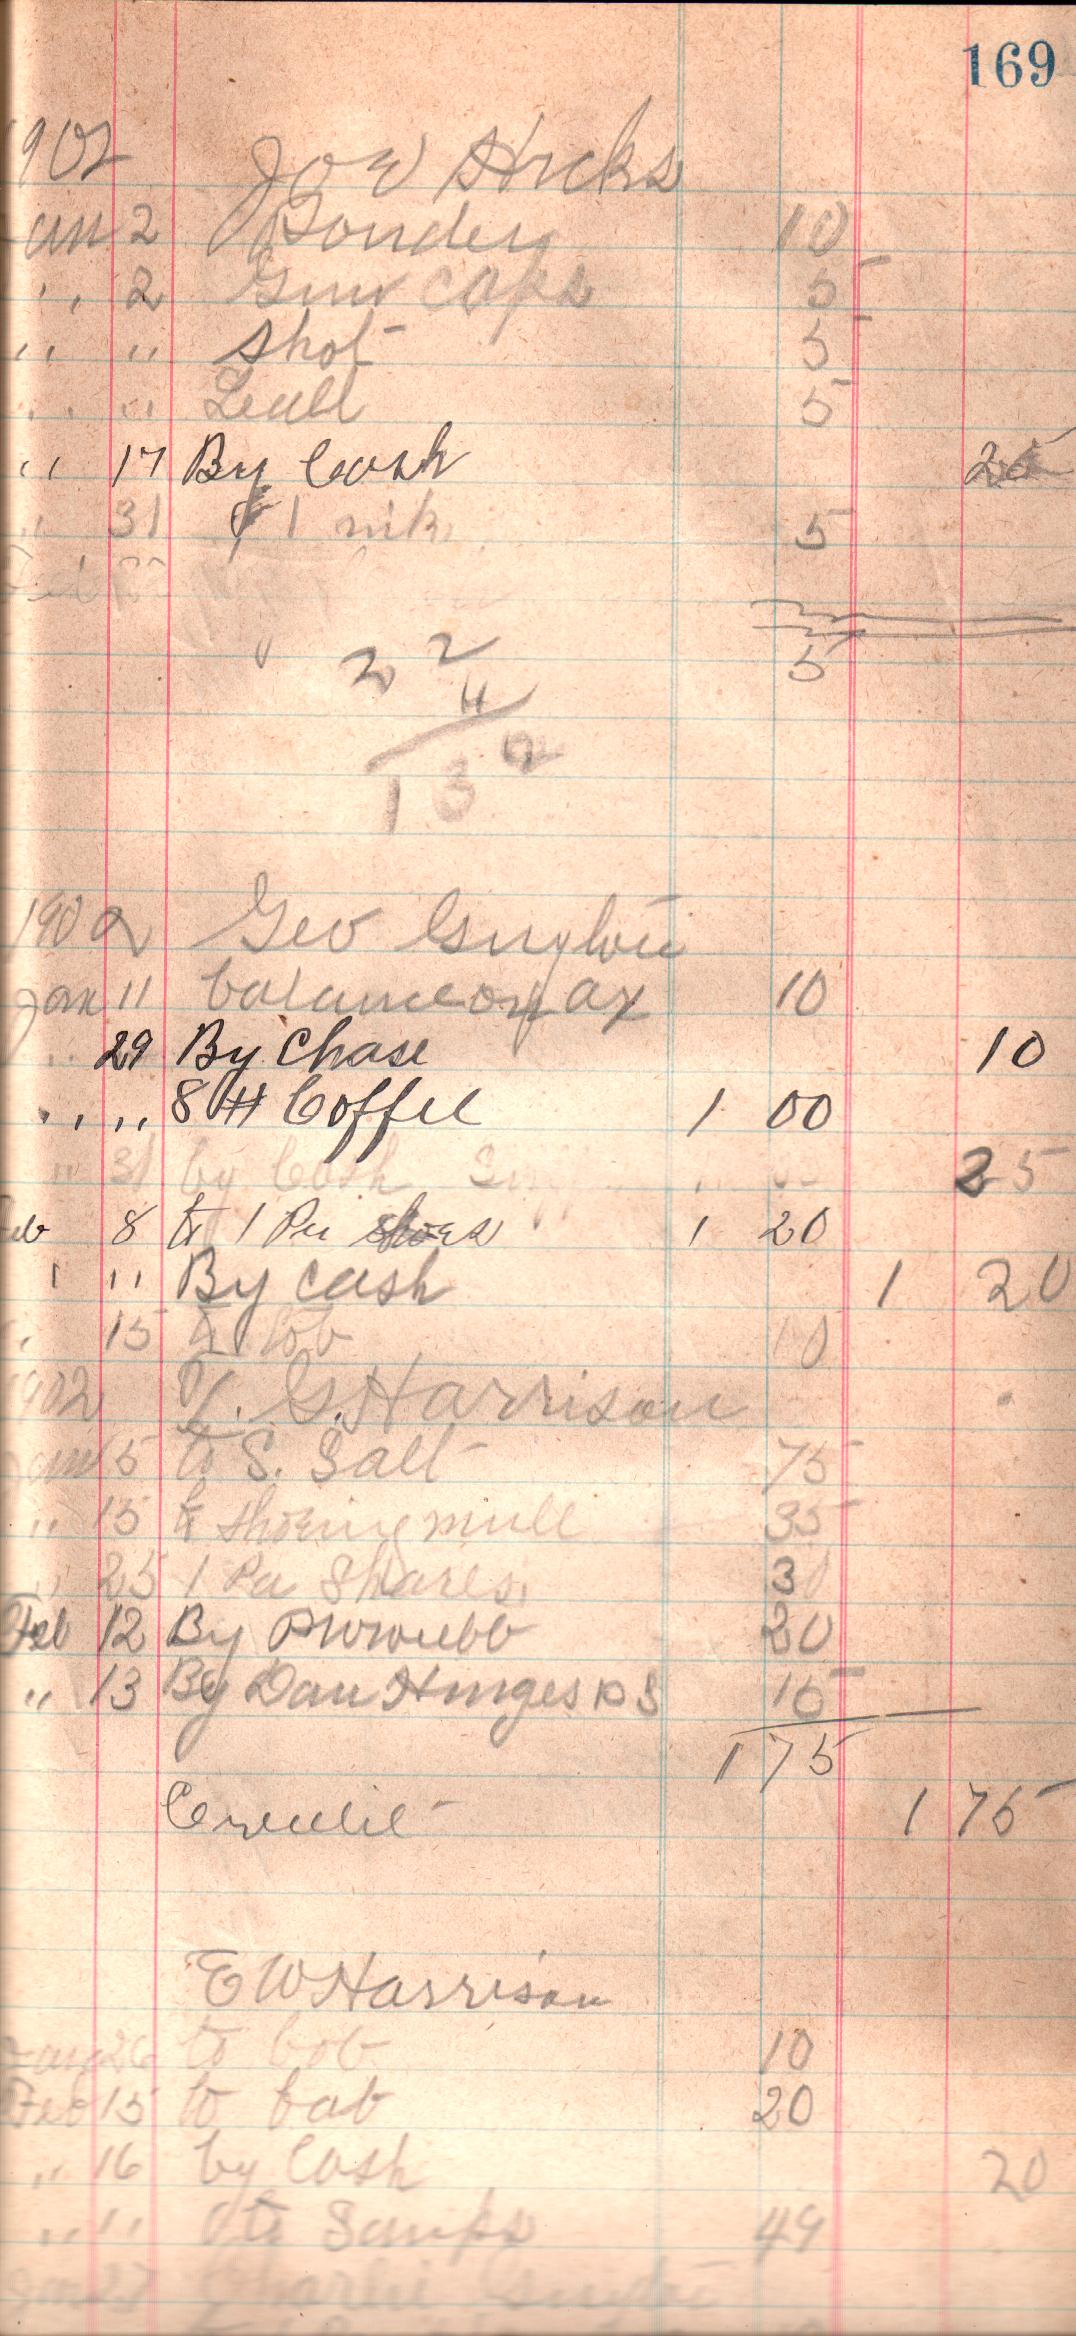 169
1902 Joe Hicks
Jan 2 Powder 10
" 2 Gun caps 5
" " Shot 5
" " Leall 5
" 17 By Cash 25
" 31 1 5
Feb
5
2 2
11
1 3 2
1902 Geo Guyton
Jan 11 balance on ax 10
" 29 By Chase 10
" " 8 # Coffee 1 00
" 31 by Cash 25
Feb 8 to 1 Pr shoes 1 20
" " By cash 1 20
" 15 to bob 10
1902 G. Harrison
Jan 15 to S. Salt 75
" 15 to Shoeing mule 35
" 25 1 Pa Shares 30
Feb 12 By 20
" 13 By Dan 15
1 75
Credit 1 75
E W Harrison
Jan 26 to bob 10
Feb 15 to bob 20
" 16 by Cash 20
" " to 49
Jan 27 Charlie